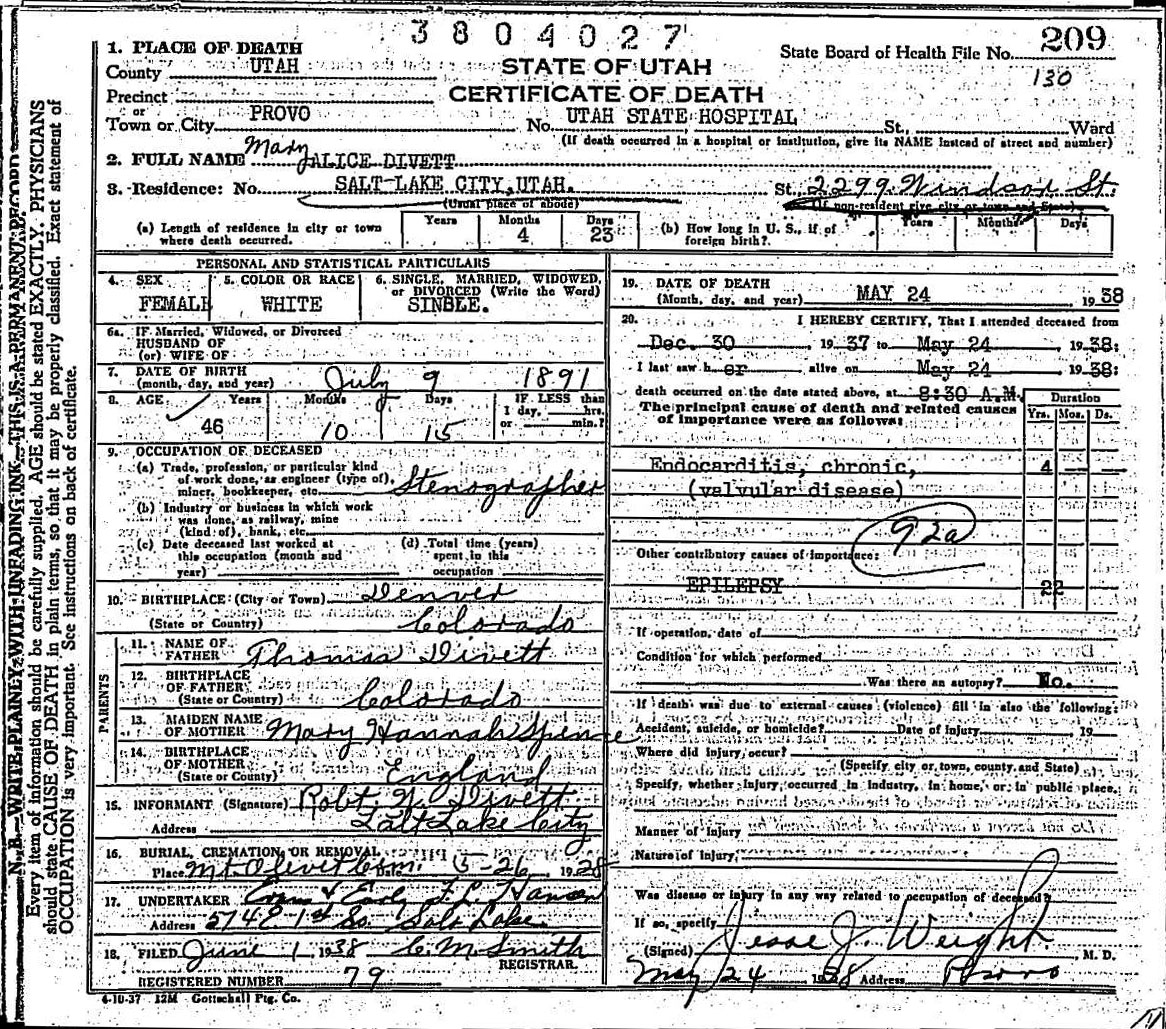 3804027
State Board of Health File No. 209
130
1. PLACE OF DEATH
County UTAH
STATE OF UTAH
Precinct
CERTIFICATE OF DEATH
or
Town or City PROVO No. UTAH STATE HOSPITAL St., Ward
(If death occurred in a hospital or institution, give its NAME instead of street and number)
2. FULL NAME Mary ALICE DIVETT
3. Residence: No. SALT LAKE CITY, UTAH. St., 2299 Windsor St.
(Usual place of abode) (If non-resident give city or town and State)
(a) Length of residence in city or town where death occurred. Years Months 4 Days 23
(b) How long in U. S., if of foreign birth? Years Months Days
PERSONAL AND STATISTICAL PARTICULARS
4. SEX FEMALE
5. COLOR OR RACE WHITE
6. SINGLE, MARRIED, WIDOWED, or DIVORCED (Write the Word) SINBLE.
6a. IF Married, Widowed, or Divorced
HUSBAND OF
(or) WIFE OF
7. DATE OF BIRTH
(month, day, and year) July 9 1891
8. AGE Years 46 Months 10 Days 15 IF LESS than 1 day, hrs. or min.?
9. OCCUPATION OF DECEASED
(a) Trade, profession, or particular kind
of work done, as engineer (type of),
miner, bookkeeper, etc. Stenographer
(b) Industry or business in which work
was done, as railway, mine
(kind of), bank, etc.
(c) Date deceased last worked at
this occupation (month and
year)
(d) Total time (years)
spent in this
occupation
10. BIRTHPLACE (City or Town) Denver
(State or Country) Colorado
PARENTS
11. NAME OF
FATHER Thomas Divett
12. BIRTHPLACE
OF FATHER
(State or Country) Colorado
13. MAIDEN NAME
OF MOTHER Mary Hannah Spence
14. BIRTHPLACE
OF MOTHER
(State or County) England
15. INFORMANT (Signature) Robt. N. Divett
Address Salt Lake City
16. BURIAL, CREMATION OR REMOVAL
Place Mt. Olivet Cem. Date 5-26, 1928
17. UNDERTAKER Evans & Early F. L. Hansen
Address 574 E. 1st So. Salt Lake
18. FILED June 1 1938 C. M. Smith
REGISTRAR.
REGISTERED NUMBER 79
4-10-37 12M Gottschall Ptg. Co.
19. DATE OF DEATH
(Month, day, and year) MAY 24 1938
20. I HEREBY CERTIFY, That I attended deceased from
Dec. 30 1937 to May 24, 1938;
I last saw her alive on May 24 1938;
death occurred on the date stated above, at 8:30 A.M.
The principal cause of death and related causes
of importance were as follows:
Duration
Yrs. Mos. Ds.
Endocarditis, chronic, 4 — —
(valvular disease)
92a
Other contributory causes of importance:
EPILEPSY 22
If operation, date of
Condition for which performed
Was there an autopsy? No.
If death was due to external causes (violence) fill in also the following:
Accident, suicide, or homicide? Date of injury 19
Where did injury occur?
(Specify city or town, county and State)
Specify, whether injury occurred in industry, in home, or in public place.
Manner of injury
Nature of injury
Was disease or injury in any way related to occupation of deceased?
If so, specify
(Signed) Jesse J. Weight, M. D.
May 24 1938 Address Provo
N. B.—WRITE PLAINLY WITH UNFADING INK—THIS IS A PERMANENT RECORD.
Every item of information should be carefully supplied. AGE should be stated EXACTLY. PHYSICIANS
should state CAUSE OF DEATH in plain terms, so that it may be properly classified. Exact statement of
OCCUPATION is very important. See instructions on back of certificate.